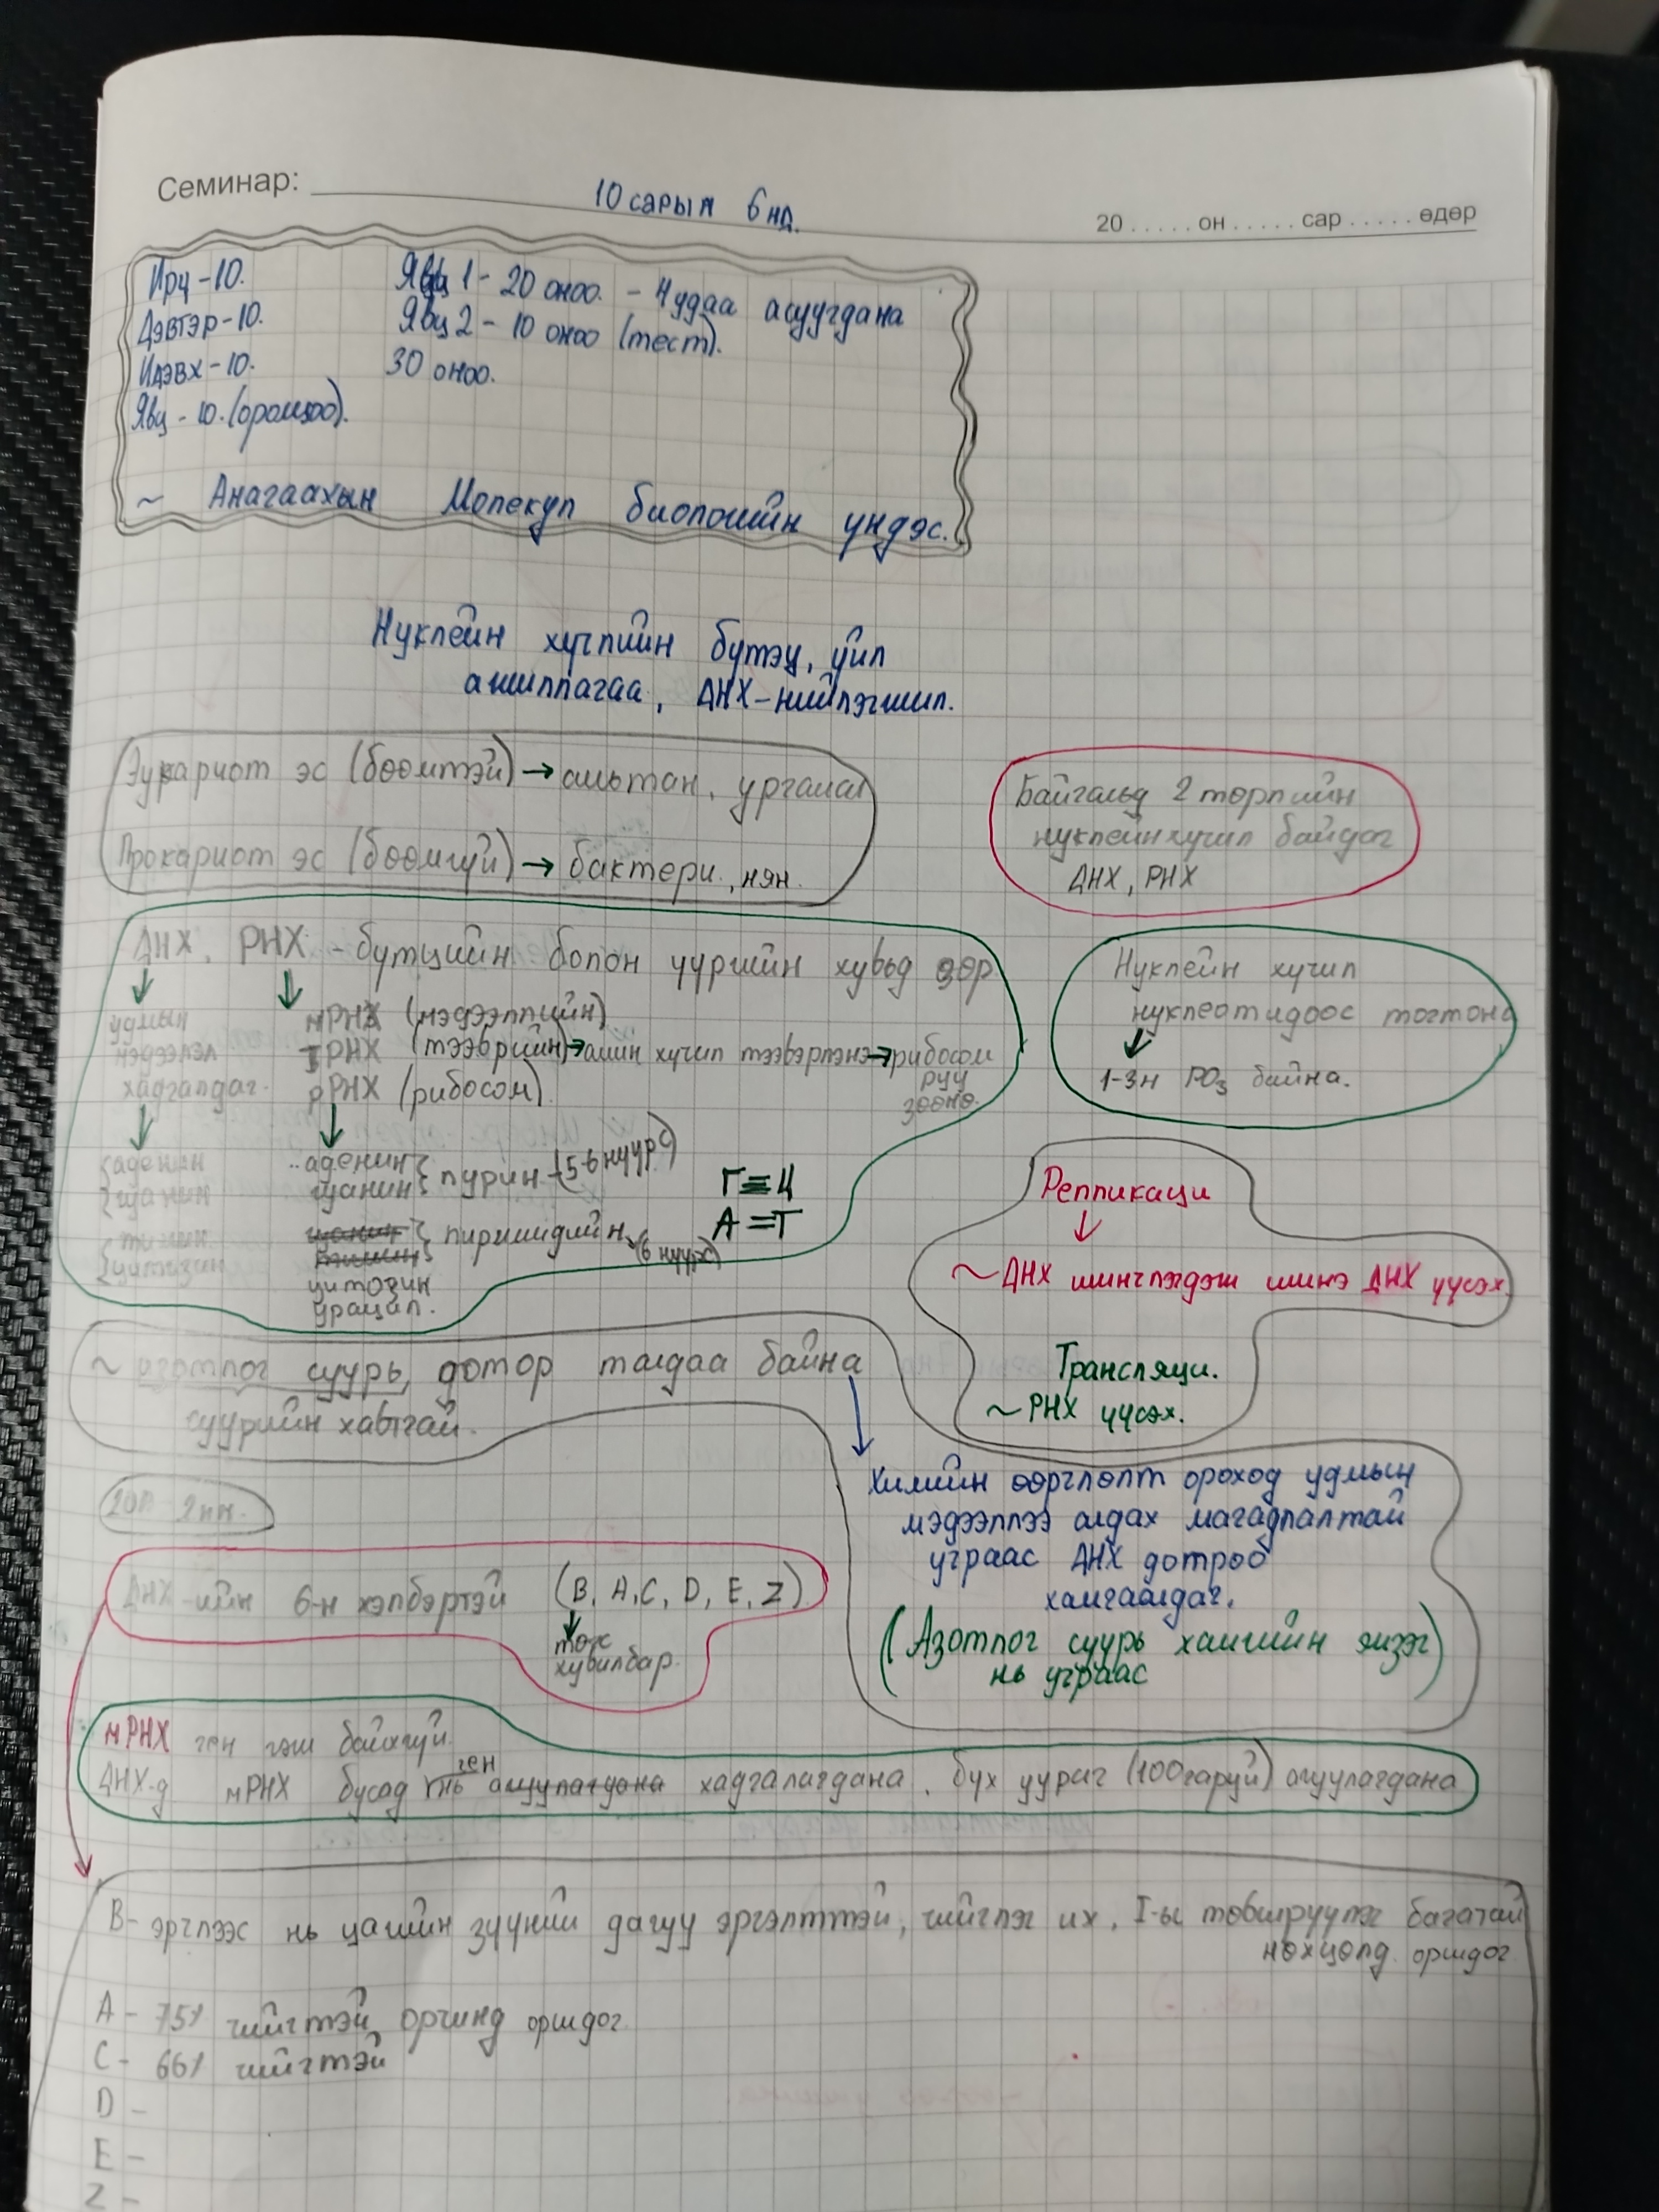 Семинар:
10 сарын 6 нд.
20 ..... он ..... сар ..... өдөр
Ирц - 10.
Дэвтэр - 10.
Идэвх - 10.
Явц - 10. (оролцоо).
Явц 1 - 20 оноо. - 4 удаа асуугдана
Явц 2 - 10 оноо (тест).
30 оноо.
~ Анагаахын Молекул биологийн үндэс.
Нуклейн хүчлийн бүтэц, үйл
ажиллагаа, ДНХ-нийлэгжил.
Эукариот эс (бөөмтэй) → амьтан, ургамал
Прокариот эс (бөөмгүй) → бактери, нян.
Байгальд 2 төрлийн
нуклейн хүчил байдаг
ДНХ, РНХ
ДНХ, РНХ - бүтцийн болон үүргийн хувьд өөр
удмын
мэдээлэл
хадгалдаг.
мРНХ (мэдээллийн)
тРНХ (тээврийн) → амин хүчил тээвэрлэнэ → рибосом
руу
зөөнө.
рРНХ (рибосом)
Нуклейн хүчил
нуклеотидоос тогтоно
1-3н PO3 байна.
{аденин
{гуанин
тимин
{цитозин
аденин
гуанин} пурин - (5-6 нүүрс)
пиримидийн (6 нүүрс)
цитозин
урацил.
Г≡Ц
А=Т
Репликаци
↓
~ ДНХ шинчлэгдэж шинэ ДНХ үүсэх.
Трансляци.
~ РНХ үүсэх.
~ азотлог суурь, дотор талдаа байна
суурийн хавтгай.
Химийн өөрчлөлт ороход удмын
мэдээллээ алдах магадлалтай
учраас ДНХ дотроо
хамгаалдаг.
(Азотлог суурь хамгийн эмзэг
нь учраас)
ДНХ-ийн 6-н хэлбэртэй (B, A, C, D, E, Z)
↓
хувилбар.
мРНХ ген гэж байхгүй.
ген
ДНХ-д мРНХ бусад нь агуулагдана хадгалагдана. бүх уураг (100 гаруй) агуулагдана
B - эргэлээс нь цагийн зүүний дагуу эргэлттэй, чийглэг их, I-ы төвшрүүлэг багатай
нөхцөлд оршдог
A - 75% чийгтэй орчинд оршдог.
C - 66% чийгтэй
D -
E -
Z -